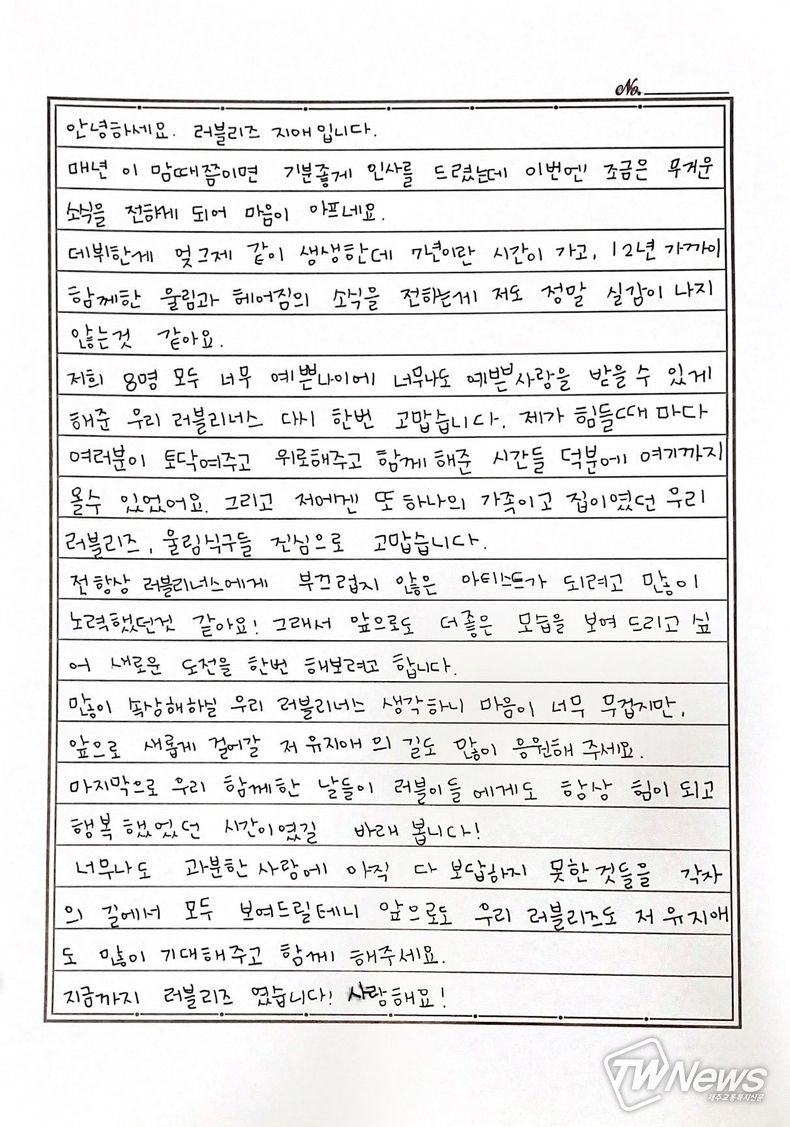 No.
안녕하세요. 러블리즈 지애입니다.
매년 이 맘때쯤이면 기분좋게 인사를 드렸는데 이번엔 조금은 무거운
소식을 전하게 되어 마음이 아프네요.
데뷔한게 엊그제 같이 생생한데 7년이란 시간이 가고, 12년 가까이
함께한 울림과 헤어짐의 소식을 전하는게 저도 정말 실감이 나지
않는것 같아요.
저희 8명 모두 너무 예쁜나이에 너무나도 예쁜사랑을 받을수 있게
해준 우리 러블리너스 다시 한번 고맙습니다. 제가 힘들때 마다
여러분이 토닥여주고 위로해주고 함께 해준 시간들 덕분에 여기까지
올수 있었어요. 그리고 저에겐 또 하나의 가족이고 집이였던 우리
러블리즈, 울림식구들 진심으로 고맙습니다.
전 항상 러블리너스에게 부끄럽지 않은 아티스트가 되려고 많이
노력했던것 같아요! 그래서 앞으로도 더 좋은 모습을 보여 드리고 싶
어 새로운 도전을 한번 해보려고 합니다.
많이 속상해하실 우리 러블리너스 생각하니 마음이 너무 무겁지만,
앞으로 새롭게 걸어갈 저 유지애 의 길도 많이 응원해 주세요.
마지막으로 우리 함께한 날들이 러블이들 에게도 항상 힘이 되고
행복했었던 시간이였길 바래 봅니다!
너무나도 과분한 사랑에 아직 다 보답하지 못한것들을 각자
의 길에서 모두 보여드릴테니 앞으로도 우리 러블리즈도 저 유지애
도 많이 기대해주고 함께 해주세요.
지금까지 러블리즈 였습니다! 사랑해요!
TWNews
제주교통복지신문